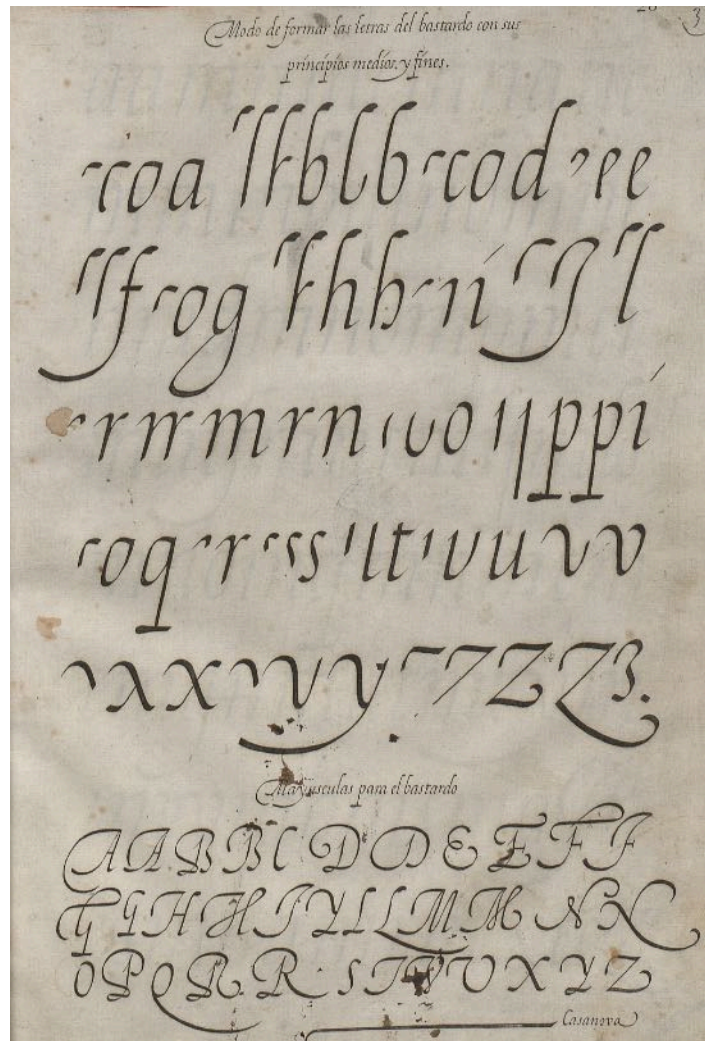 Modo de formar las letras del bastardo con sus
principios medios, y fines.
r c o a l l k b l b r c o d e e
l l f r o g l k h b r n í I l
r r n r m r n ı u o ı q p p í
r o q r r s s ı l t ı u u v v
x x y y z z z z 3.
Mayusculas para el bastardo
A A B B C D D E E F F
G G H H I Y L L M M N N
O P Q R R S T V U X Y Z
Casanova